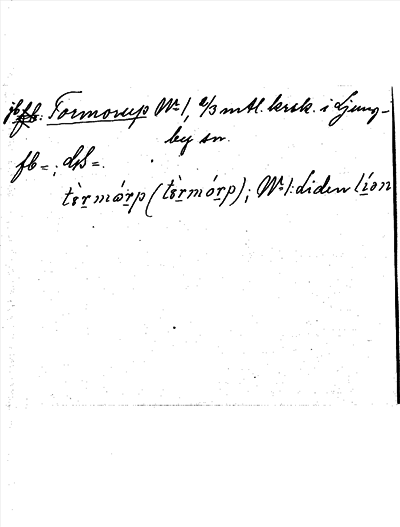 jb fb: Tormorup No 1, 2/3 mtl. krsk. i Ljung-
by sn.
fb =; dsb =.
tèrmórp (tèrmórp); No 1: Liden líon